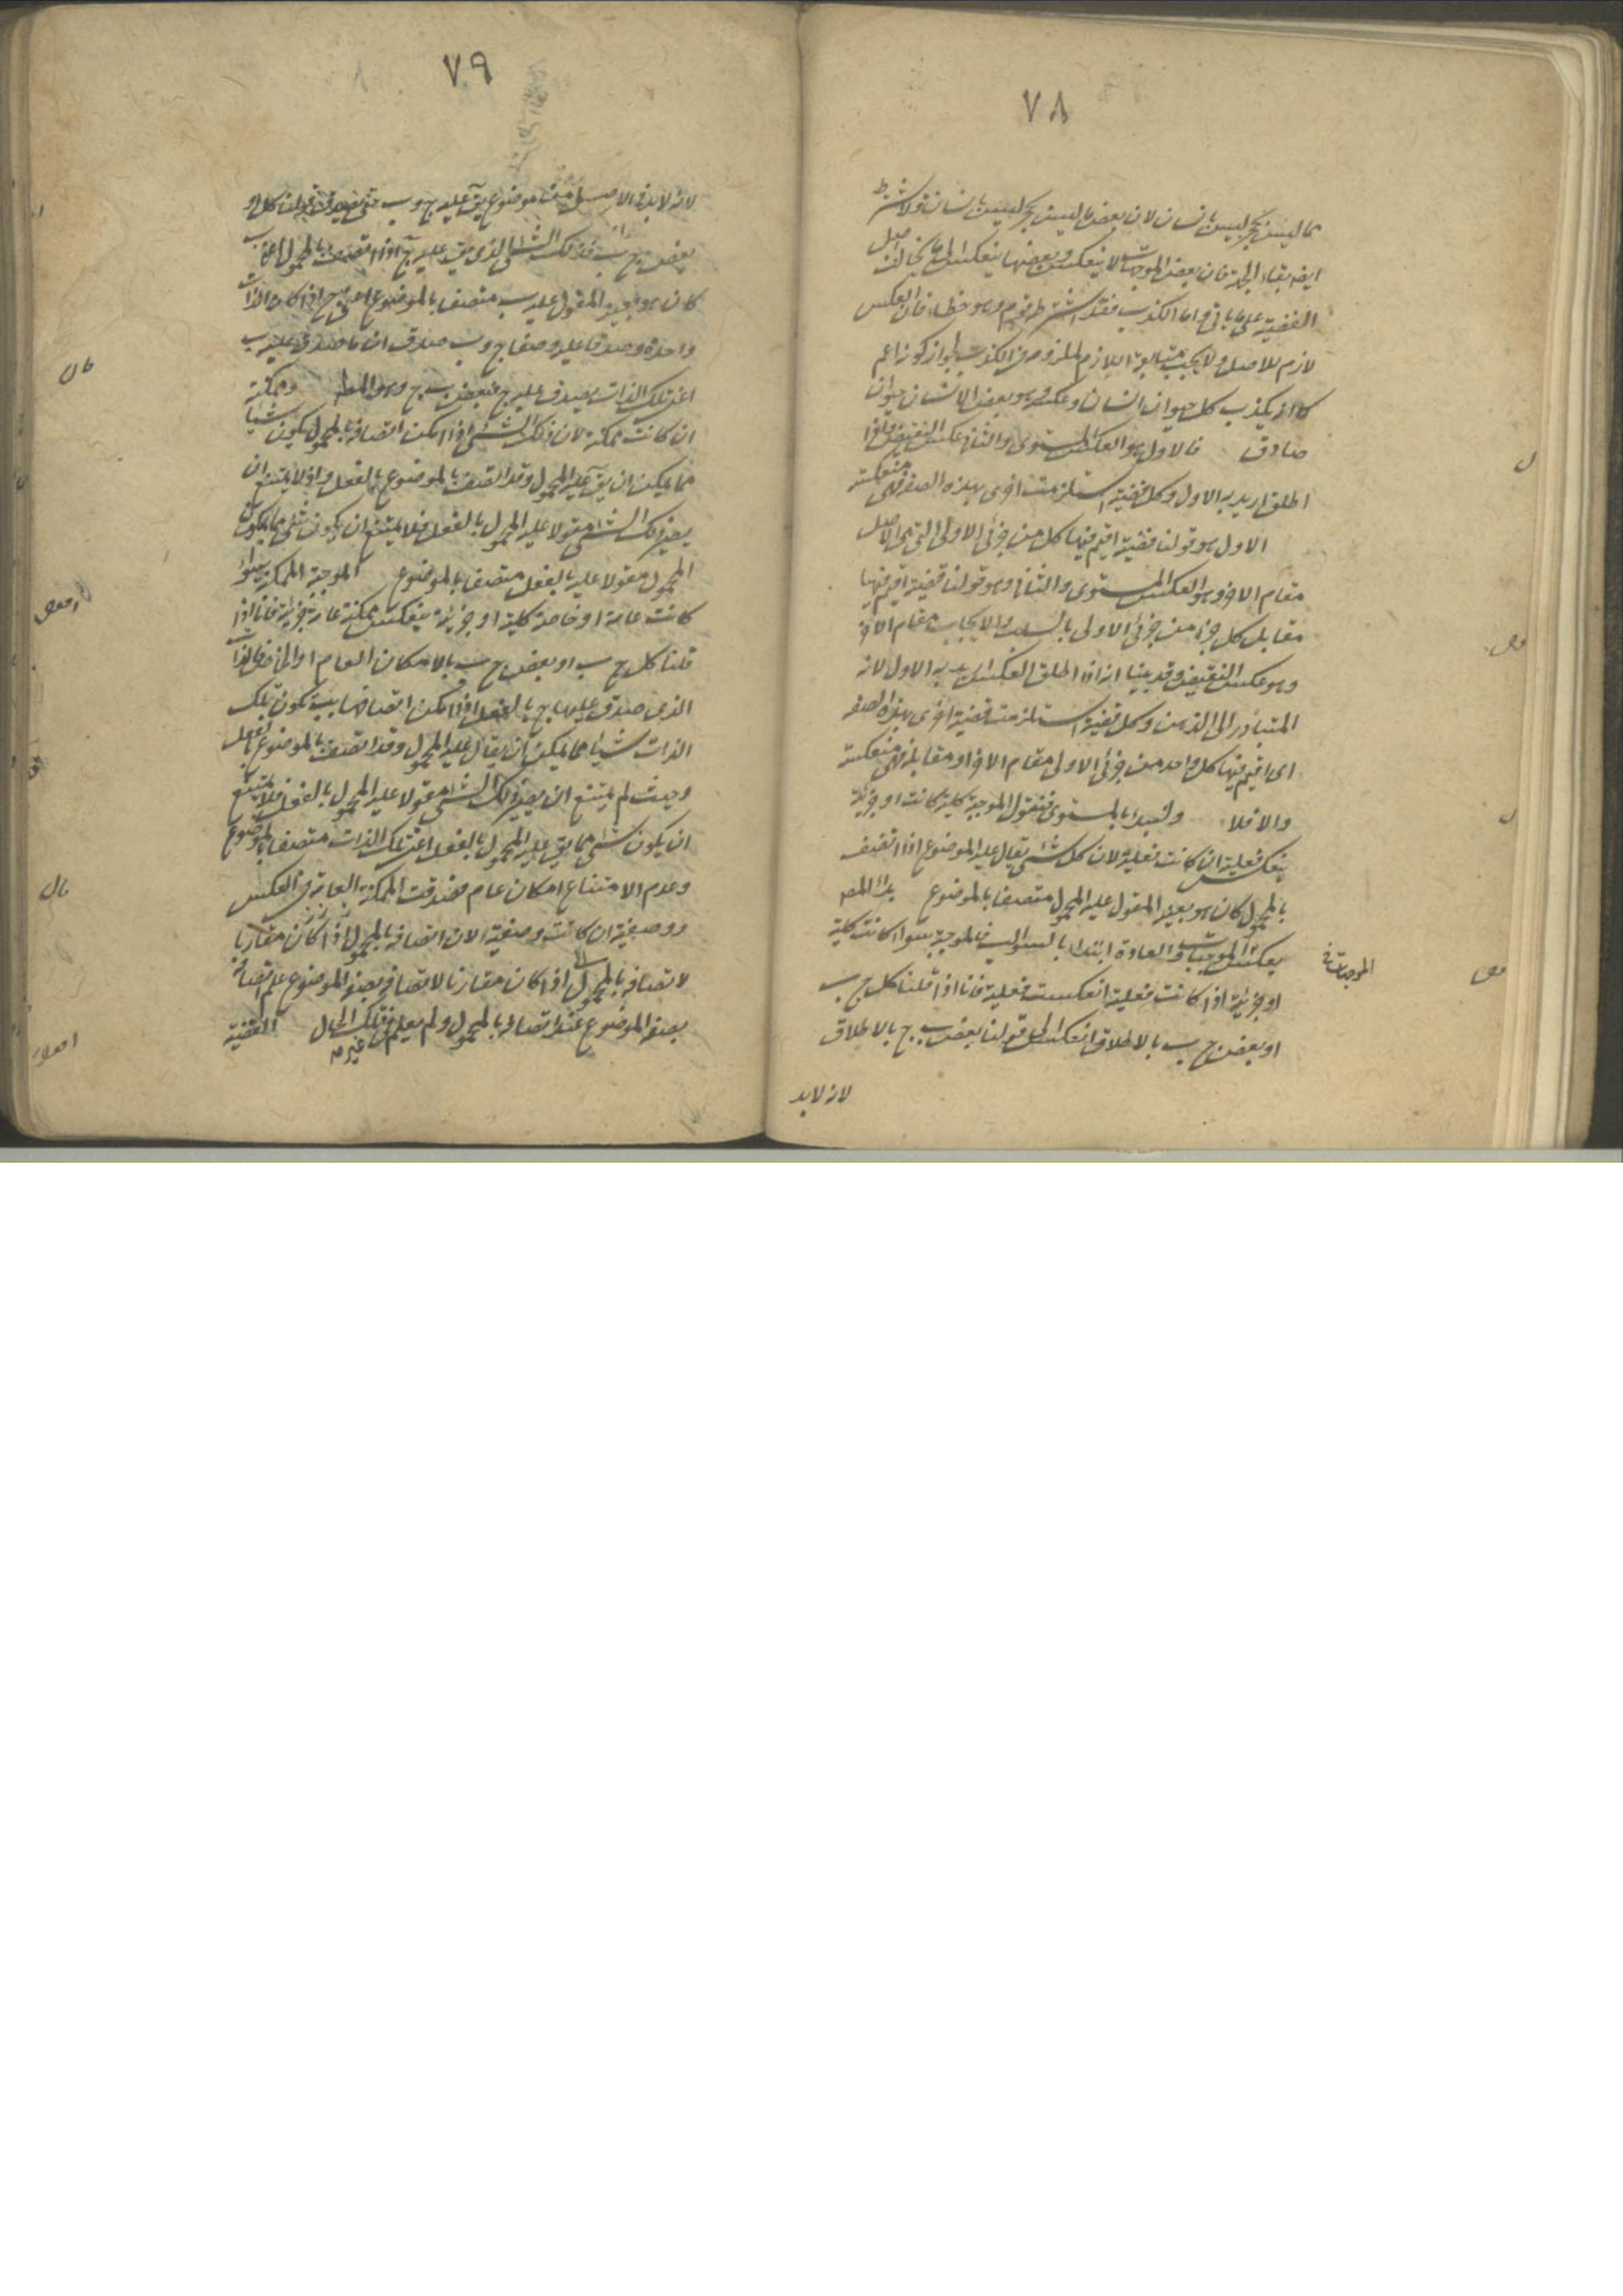 ٧٨
مما ليس بحجر ليس بانسان لان بعض ما ليس بحجر ليس بانسان ولا يشترط
ايض بقاء الجهة فان بعض الموجهات لا ينعكس وبعضها ينعكس الى ما يخالف اصل
القضية على ما ياتى واما الكذب فقد اشترطه قوم وهو خطاء فان العكس
لازم للاصل ولا يجب متابعة اللازم الملزوم فى الكذب لجواز كونه اعم
كما انه يكذب كل حيوان انسان وعكسه وهو بعض الانسان حيوان
صادق فالاول هو العكس المستوى والثانى عكس النقيض واذا
اطلق اريد به الاول وكل قضية استلزمت اخرى بهذه الصفة فهى منعكسة
الاول هو قولنا قضية اقيم فيها كل من جزئى الاولى التى هى الاصل
مقام الاخر وهو العكس المستوى والثانى وهو قولنا قضية اقيم فيها
مقابل كل جزء من جزئى الاولى بالسلب والايجاب مقام الاخر
وهو عكس النقيض وقد بينا انه اذا اطلق العكس اريد به الاول لانه
المتبادر الى الذهن وكل قضية استلزمت قضية اخرى بهذه الصفة
اى اقيم فيها كل واحد من جزئى الاولى مقام الاخر او مقابله فهى منعكسة
والا فلا ولنبدا بالمستوى فنقول الموجبة كلية كانت او جزئية
ينعكس فعلية ان كانت فعلية لان كل شئ يقال عليه الموضوع اذا اتصف
بالمحمول كان هو بعينه المقول عليه المحمول متصفا بالموضوع بدا المصـ
بعكس الموجبات والعادة ابتدا بالسوالب فالموجبة سواء كانت كلية
الموجبات فى
او جزئية اذا كانت فعلية انعكست فعلية فانا اذا قلنا كل ج ب
او بعض ج ب بالاطلاق انعكس الى قولنا بعض ب ج بالاطلاق
لانه لابد
٧٩
لانه لابد فى الاصل من موضوع يق عليه ج وب حتى يصدق قولنا كل او
بعض ج ب فذلك الشئ الذى يق عليه ج اذا اتصف بالمحمول اعنى ب
كان هو بعينه المقول عليه ب متصفا بالموضوع اعنى ج اذا كان الذات
واحدة وصدقا عليه وصفا ج وب صدق ان ما صدق عليه ب
اعنى تلك الذات يصدق عليه ج فبعض ب ج وهو المط وممكنة
ان كانت ممكنة لان ذلك الشئ اذا امكن اتصافه بالمحمول يكون شيئا
مما يمكن ان يق عليه المحمول وقد اتصف بالموضوع بالفعل واذ لا يمتنع ان
يصير ذلك الشئ مقولا عليه المحمول بالفعل فلا يمتنع ان يكون شئ مما يكون
المحمول مقولا عليه بالفعل متصفا بالموضوع الموجبة الممكنة سواء
كانت عامة او خاصة كلية او جزئية ينعكس ممكنة عامة جزئية فانا اذا
قلنا كل ج ب او بعض ج ب بالامكان العام او الخاص فالذات
الذى صدق عليها ج بالفعل اذا امكن اتصافها بب تكون تلك
الذات شيئا مما يمكن ان يقال عليه المحمول وقد اتصف بالموضوع بالفعل
وحيث لم يمتنع ان يصير ذلك الشئ مقولا عليه المحمول بالفعل فلا يمتنع
ان يكون شئ مما يق عليه المحمول بالفعل اعنى تلك الذات متصفا بالموضوع
وعدم الامتناع امكان عام فصدقت الممكنة العامة فى العكس
ووصفية ان كانت وصفية لان اتصافه بالمحمول اذا كان مقارنا
لاتصافه بالمحمول اذا كان مقارنا لاتصافه بصفة الموضوع علم اتصافه
بصفة الموضوع عند اتصافه بالمحمول ولم يعلم فى تلك الحال القضية
غيره